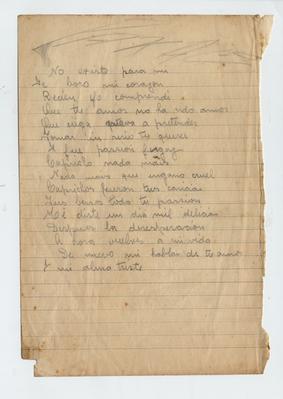 No existe para mi
Te boro mi corazon
Recien yo comprendi
Que tu amor no ha sido amor
Que
Tomar
A fue pasion fugaz
Capricho nada más
Nada mas que engaño cruel
Caprichos fueron tus caricias
Tus besos todo tu pasion
Me diste un dia mil delicias
Despues la desesperacion
A hora vuelves a mi vida
De nuevo mi hablas de tu amor
Y mi alma triste